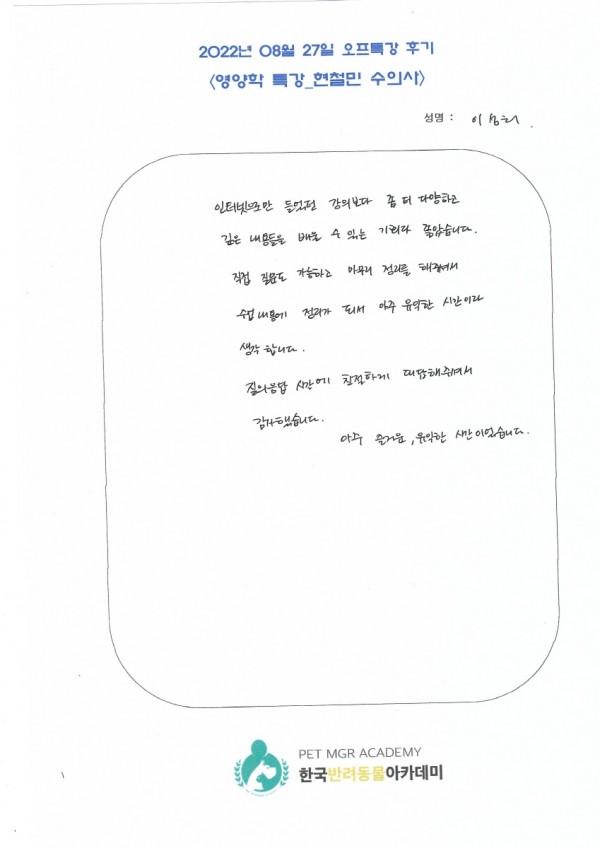 2022년 08월 27일 오프특강 후기
<영양학 특강_현철민 수의사>
성명 :
인터넷으로만 들었던 강의보다 좀 더 다양하고
깊은 내용들을 배울 수 있는 기회라 좋았습니다.
직접 질문도 가능하고 마무리 정리를 해주셔서
수업내용에 정리가 되서 아주 유익한 시간이라
생각합니다.
질의응답 시간에 친절하게 대답해주셔서
감사했습니다.
아주 즐거운, 유익한 시간이었습니다.
PET MGR ACADEMY
한국반려동물아카데미